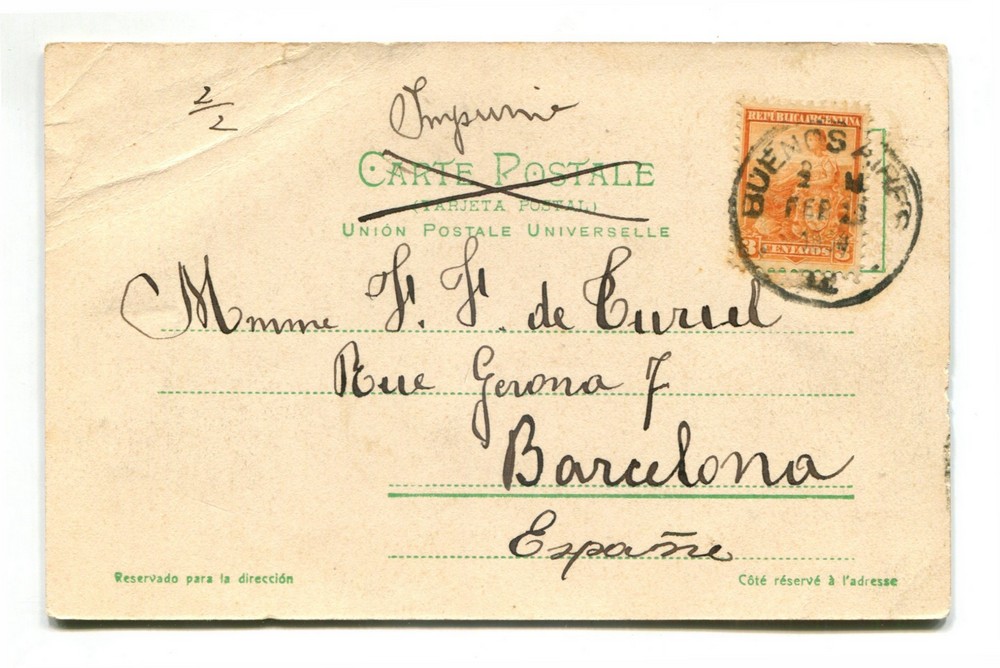 2/2
Imprimé
CARTE POSTALE
(TARJETA POSTAL)
UNIÓN POSTALE UNIVERSELLE
REPUBLICA ARGENTINA
3 CENTAVOS 3
BUENOS AIRES
FEB
12
Mmme H. H. de Curiel
Rue Gerona 7
Barcelona
Españe
Reservado para la dirección
Côté réservé à l'adresse